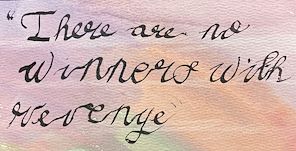 "There are no
Winners with
revenge"